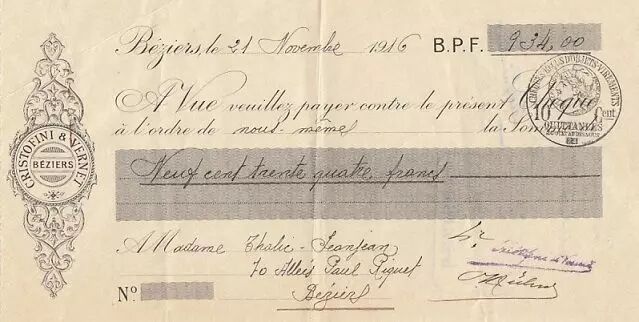 Béziers, le 21 Novembre 1916 B.P.F. 934,00
A Vue veuillez payer contre le présent Chèque
à l'ordre de nous-même la Som
10 Cent
QUITTANCES
CRISTOFINI & VERNET
BÉZIERS
Neuf cent trente quatre francs
A Madame Thalie-Jeanjean
70 Alleis Paul Riquet
Béziers
Nº